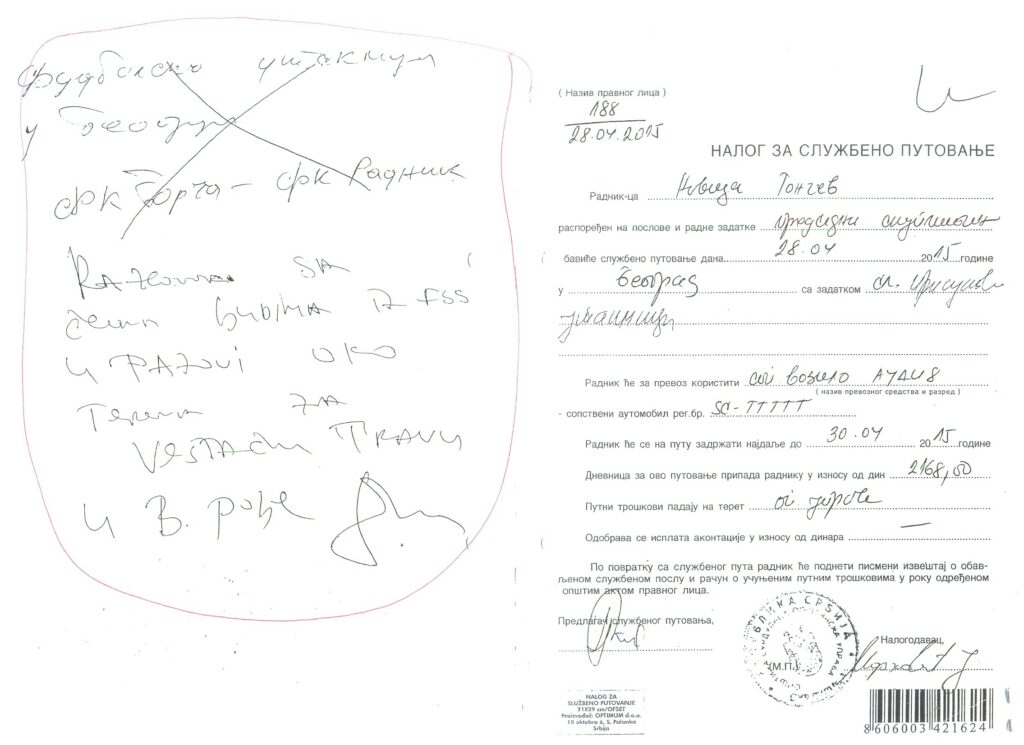 фудбалску утакмицу
у Београду
ФК Борча - ФК Радник
SA
људима IZ FSS
U PAZOVI OKO
Terena ZA
VEŠTAČKU TRAVU
U В. рође
( Назив правног лица )
188
28.04.2015
НАЛОГ ЗА СЛУЖБЕНО ПУТОВАЊЕ
Радник-ца Новица Тончев
распоређен на послове и радне задатке председник скупштине
бавиће службено путовање дана 28.04 2015 године
у Београд са задатком сл. присуство
утакмици
Радник ће за превоз користити сл возило АУДИ 8
( назив превозног средства и разред )
- сопствени аутомобил рег.бр. SC-TTTTT
Радник ће се на путу задржати најдаље до 30.04 2015 године
Дневница за ово путовање припада раднику у износу од дин 2168,00
Путни трошкови падају на терет
Одобрава се исплата аконтације у износу од динара —
По повратку са службеног пута радник ће поднети писмени извештај о обав-
љеном службеном послу и рачун о учуњеним путним трошковима у року одређеном
општим актом правног лица.
Предлагач службеног путовања,
Налогодавац,
(М.П.)
РЕПУБЛИКА СРБИЈА
NALOG ZA
SLUŽBENO PUTOVANJE
21X29 cm/OFSET
Proizvođač: OPTIMUM d.o.o.
10 oktobra 6, S. Palanka
Srbija
8606003421624